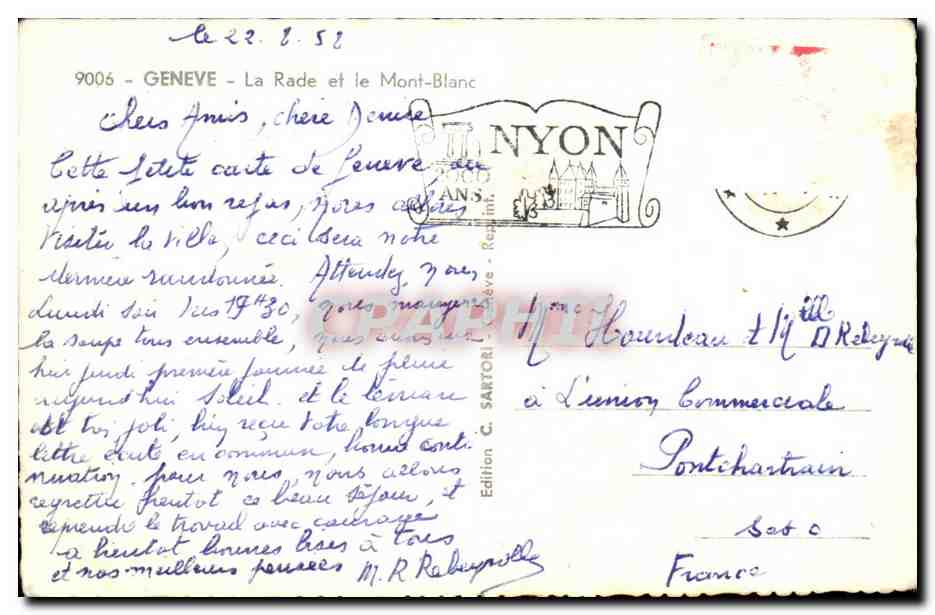 le 22. 8. 58
9006 - GENEVE - La Rade et le Mont-Blanc
Chers Amis, chère Denise
Cette petite carte de Geneve, ou
après un bon repas, nous allons
visiter la ville, ceci sera notre
dernière randonnée. Attendez nous
Lundi soir vers 17H30, nous mangerons
la soupe tous ensemble, nous avons eu
hier jeudi première journée de pleine
aujourd'hui soleil et le Léman
est très joli, bien reçu votre longue
lettre écrite en commun, bonne conti
nuation pour nous, nous allons
regretter bientot ce beau séjour, et
reprendre le travail avec courage
a bientot, bonnes bises à tous
et nos meilleurs pensées M. R Rebeyrolle
NYON
2000
ANS
Edition C. SARTORI - Genève - Reprint.
CPAPHIL
Mme Hourdeau et Mlle D Rebeyrolle
à L'union Commerciale
Pontchartrain
S et O
France